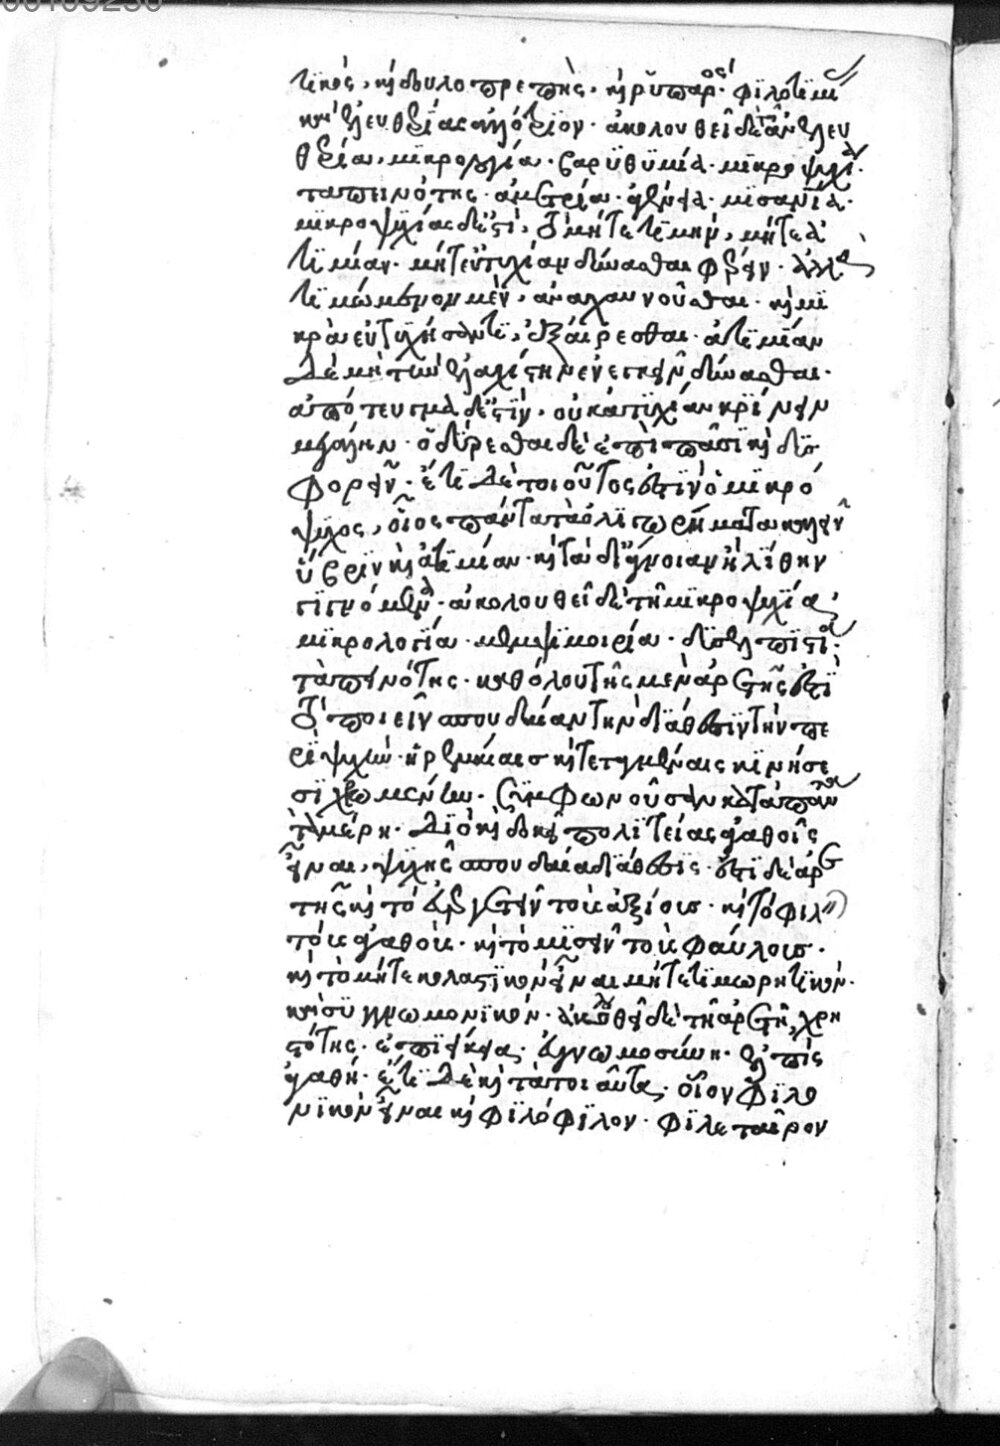 τικὸς, καὶ δουλοπρεπὴς. καὶ ῥυπαρός. φιλοτιμίας
καὶ ἐλευθερίας ἀλλότριον. ἀκολουθεῖ δὲ τῆ ἀνελευ
θερία, μικρολογία. βαρυθυμία. μικροψυχία.
ταπεινότης. ἀμετρία. ἀγένεια. μισανία.
μικροψυχίας δὲ ἔστι, τὸ μήτε τιμὴν, μήτε ἀ
τιμίαν. μήτε εὐτυχίαν δύνασθαι φέρειν. ἀλλὰ
τιμώμενον μὲν, ἀναχαυνοῦσθαι. καὶ μι
κρὰ εὐτυχήσαντι, ἐξαίρεσθαι. ἀτιμίαν
δὲ μὴ τὴν ἐλαχίστην ἐνεγκεῖν δύνασθαι.
ἀπότευγμα δὲ ἔστιν, οὐκ ἀτυχίαν κρίνειν
μεγάλην. ὀδύρεσθαι δὲ ἐπὶ πᾶσι καὶ δυσ
φορεῖν. ἔτι δὲ τοιοῦτος ἐστὶν ὁ μικρό
ψυχος, οἷος πάντα τὰ ὀλιγωρήματα καλεῖν
ὕβριν καὶ ἀτιμίαν. καὶ τὰ δι' ἄγνοιαν ἢ λίθην
γιγνόμενα. ἀκολουθεῖ δὲ τῆ μικροψυχία,
μικρολογία. μεμψιμοιρία. δυσελπιστία.
ταπεινότης. καθόλου τῆς μὲν ἀρετῆς ἐστὶ
τὸ ποιεῖν σπουδαίαν τὴν διάθεσιν τὴν πε
ρὶ ψυχὴν. ἠρεμαίαις καὶ τεταγμέναις κινήσε
σι χρωμένην. συμφωνοῦσαν κατὰ πάντα
τὰ μέρη. διὸ καὶ δοκεῖ πολιτείας ἀγαθῆς
εἶναι, ψυχῆς σπουδαία διάθεσις. ἔστι δὲ ἀρε
τῆς καὶ τὸ εὐεργετεῖν τοὺς ἀξίους. καὶ τὸ φιλεῖν
τοὺς ἀγαθοὺς. καὶ τὸ μισεῖν τοὺς φαύλους.
καὶ τὸ μήτε κολαστικὸν εἶναι μήτε τιμωρητικὸν.
καὶ συγγνωμονικὸν. ἀκολουθεῖ δὲ τῆ ἀρετῆ, χρη
στότης. ἐπιείκεια. εὐγνωμοσύνη. ἐλπὶς
ἀγαθή. ἔτι δὲ καὶ τὰ τοιαῦτα. οἷον φιλο
νικον εἶναι καὶ φιλόφιλον. φιλεταῖρον